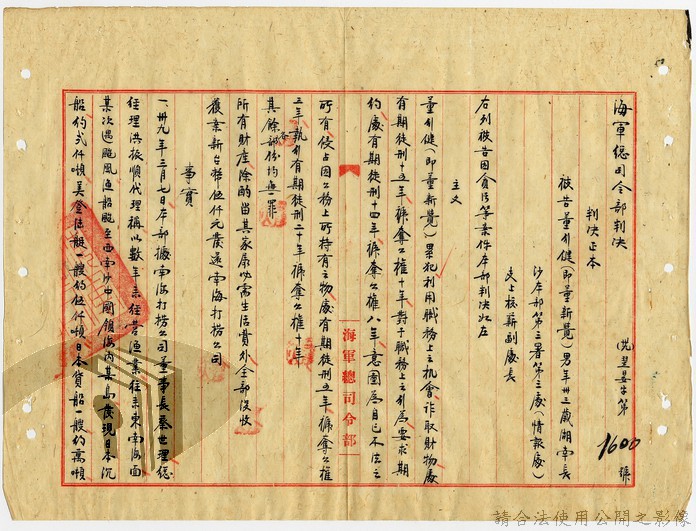 海軍總司令部判決
判決正本
字第1600號
被告董行健(即董新覺)男年卅三歲湖南長
沙本部第三署第三處(情報處)
上校薪副處長
右列被告因貪污等案件本部判決如左
主文
董行健(即董新覺)累犯利用職務上之機會詐取財物處
有期徒刑十五年褫奪公權十年對于職務上之行為要求期
約處有期徒刑十四年褫奪公權八年意圖為自己不法之
所有侵占因公務上所持有之物處有期徒刑五年褫奪公權
三年執行有期徒刑二十年褫奪公權十年
其餘部份均無罪
所有財產除酌留其家屬必需生活費外全部沒收
獲案新台幣伍仟元發還南海打撈公司
事實
一、卅九年三月七日本部據南海打撈公司董事長蔡世理總
經理洪振順代理稱以數年來經營漁業往來東南海面
某次遇颱風漁船飄至西南沙中國領海內某島發現日本沉
船約弍仟噸美登陸艇一艘約伍仟噸日本貨船一艘約萬噸
海軍總司令部
請合法使用公開之影像